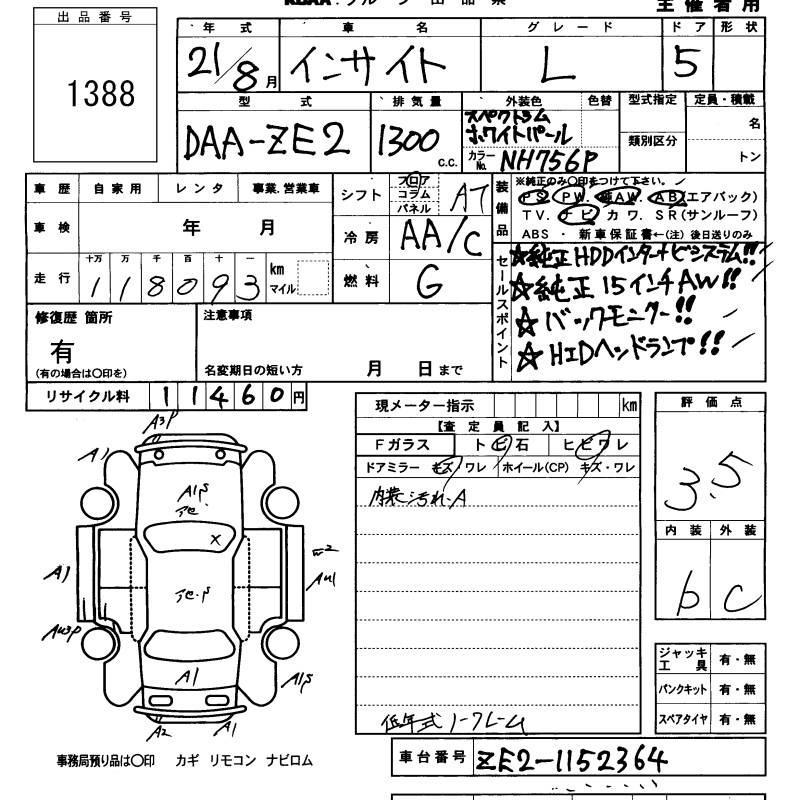 KCAA グループ 出 品 票
主 催 者 用
出 品 番 号
1388
年 式 車 名 グ レ ー ド ド ア 形 状
21/8 月 インサイト L 5
型 式 排 気 量 外装色 色替 型式指定 定員・積載
DAA-ZE2 1300 c.c. スペクトラム ホワイトパール 名
類別区分
カラーNo. NH756P トン
車 歴 自 家 用 レ ン タ 事業.営業車
シフト フロア コラム パネル AT
車 検 年 月
冷 房 AA/C
走 行 十万 万 千 百 十 一 km マイル
118093
燃 料 G
装備品
※純正のみ〇印をつけて下さい。
PS PW 純AW AB(エアバック)
TV. ナビ カワ. SR(サンルーフ)
ABS ・ 新車保証書←(注)後日送りのみ
セールスポイント
☆純正HDDインターナビシステム!!
☆純正15インチAW!!
☆バックモニター!!
☆HIDヘッドランプ!!
修復歴 箇所
有
(有の場合は〇印を)
注意事項
名変期日の短い方 月 日 まで
リサイクル料 11460 円
現メーター指示 km
【査 定 員 記 入】
Fガラス トビ石 ヒビワレ
ドアミラー キズ・ワレ ホイール(CP) キズ・ワレ
内装汚れ.A
低年式 ノークレーム
評 価 点
3.5
内 装 外 装
b c
ジャッキ 工 具 有・無
パンクキット 有・無
スペアタイヤ 有・無
A3P
A1
A1S
X
A1
W2
AU1
AU3P
A1
A1S
A2
A1
事務局預り品は〇印 カギ リモコン ナビロム
車台番号 ZE2-1152364